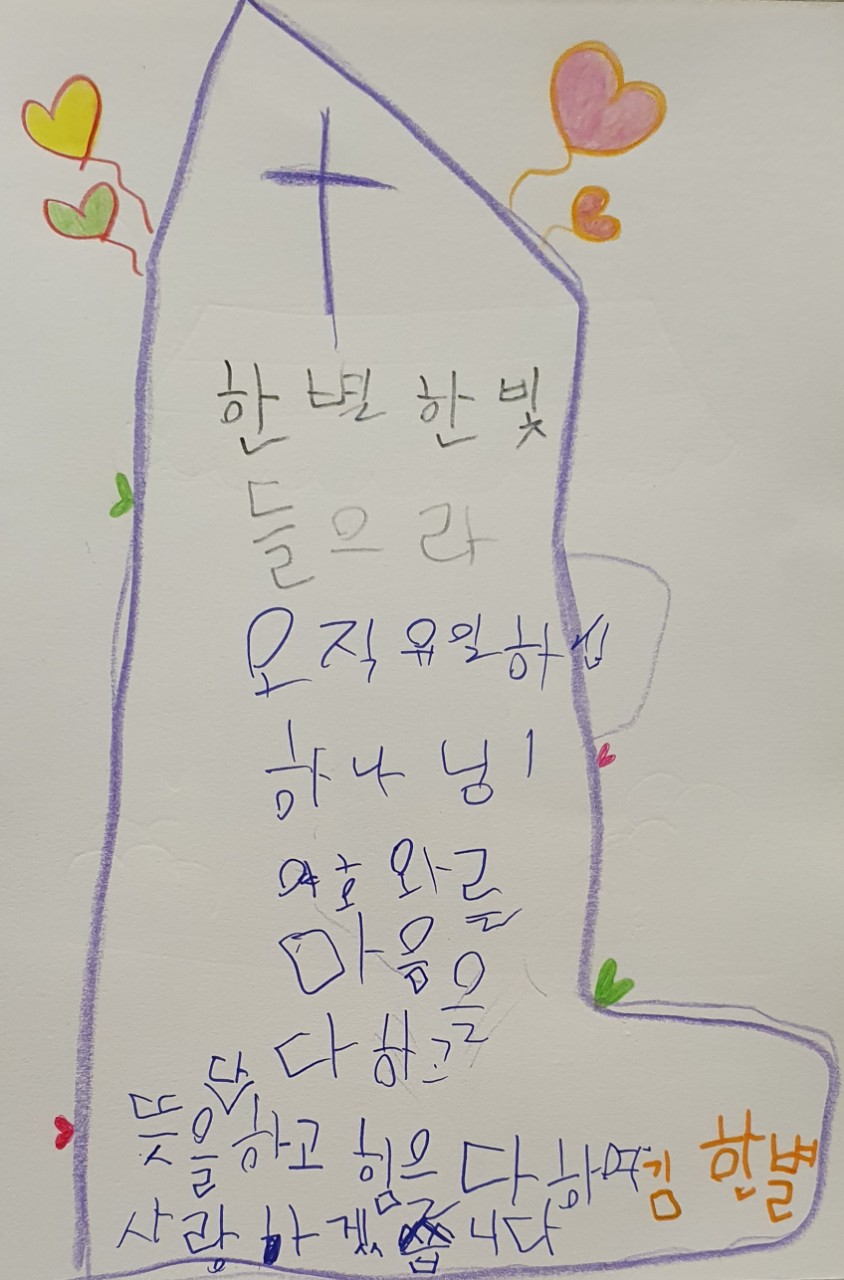 한별한빛
들으라
오직유일하신
하나님이
여호와를
마음을
다하고
뜻을다하고 힘으다하여
사랑하겠습니다
김한별